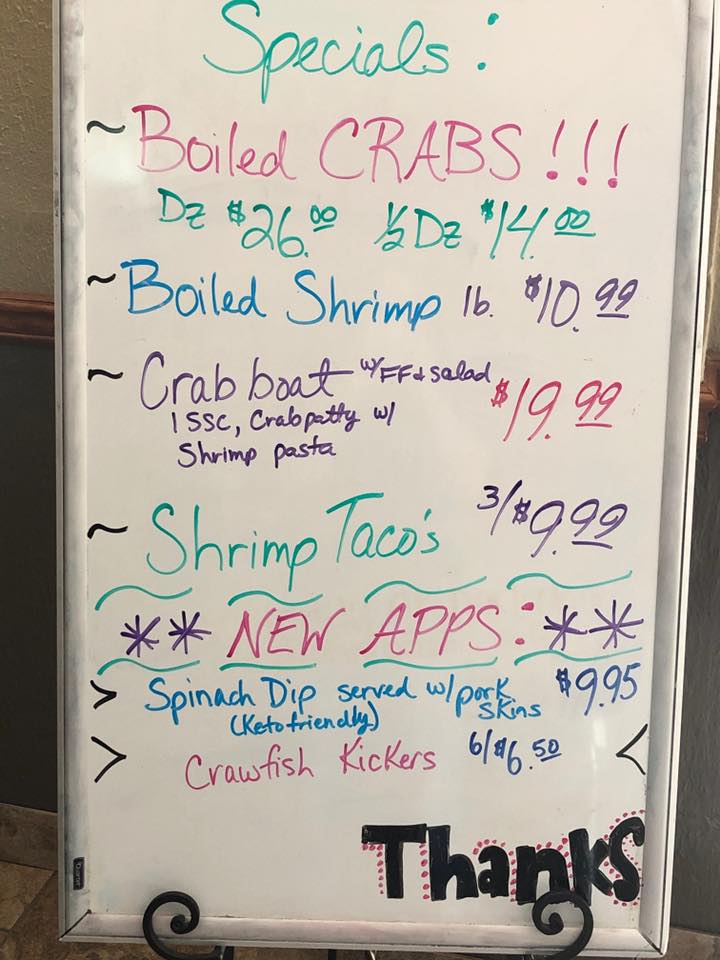 Specials:
~ Boiled CRABS!!!
Dz $26.00 1/2 Dz $14.00
~ Boiled Shrimp lb. $10.99
~ Crab boat w/FF & salad $19.99
1 SSC, Crab patty w/
Shrimp pasta
~ Shrimp Taco's 3/$9.99
** NEW APPS: **
> Spinach Dip served w/pork skins $9.95
(Keto friendly)
> Crawfish Kickers 6/$6.50 <
Thanks
Quartet